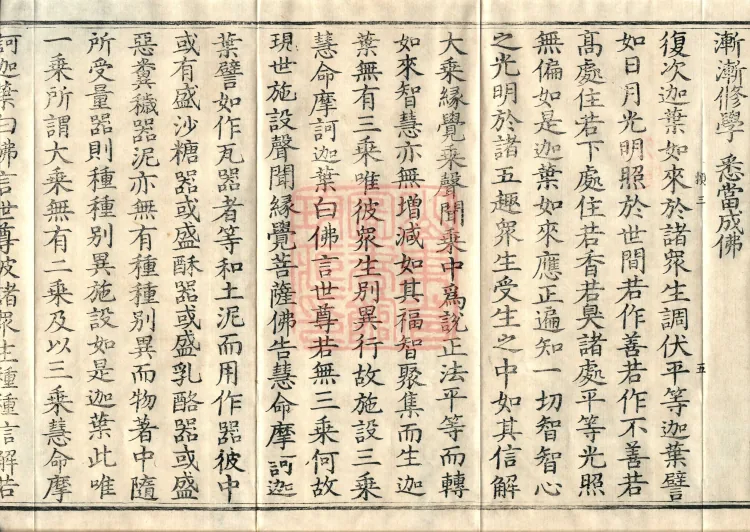 漸漸修學 悉當成佛
復次迦葉如來於諸衆生調伏平等迦葉譬
如日月光明照於世間若作善若作不善若
高處住若下處住若香若臭諸處平等光照
無偏如是迦葉如來應正遍知一切智智心
之光明於諸五趣衆生受生之中如其信解
大乘緣覺乘聲聞乘中爲說正法平等而轉
如來智慧亦無增減如其福智聚集而生迦
葉無有三乘唯彼衆生別異行故施設三乘
慧命摩訶迦葉白佛言世尊若無三乘何故
現世施設聲聞緣覺菩薩佛告慧命摩訶迦
葉譬如作瓦器者等和土泥而用作器彼中
或有盛沙糖器或盛酥器或盛乳酪器或盛
惡糞穢器泥亦無有種種別異而物著中隨
所受量器則種種別異施設如是迦葉此唯
一乘所謂大乘無有二乘及以三乘慧命摩
訶迦葉白佛言世尊彼諸衆生種種信解若
三
五